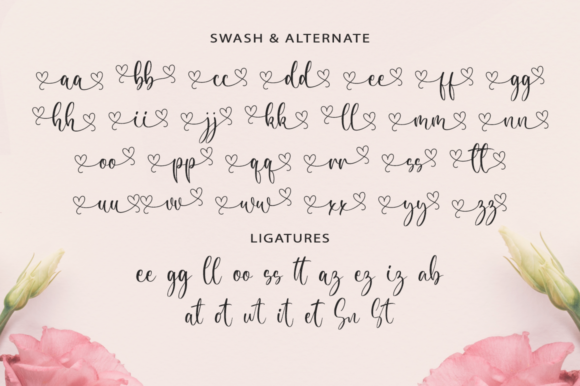 SWASH & ALTERNATE
aa bb cc dd ee ff gg
hh ii jj kk ll mm nn
oo pp qq rr ss tt
uu vv ww xx yy zz
LIGATURES
ee gg ll oo ss tt az ez iz ab
at ot ut it et Sn St